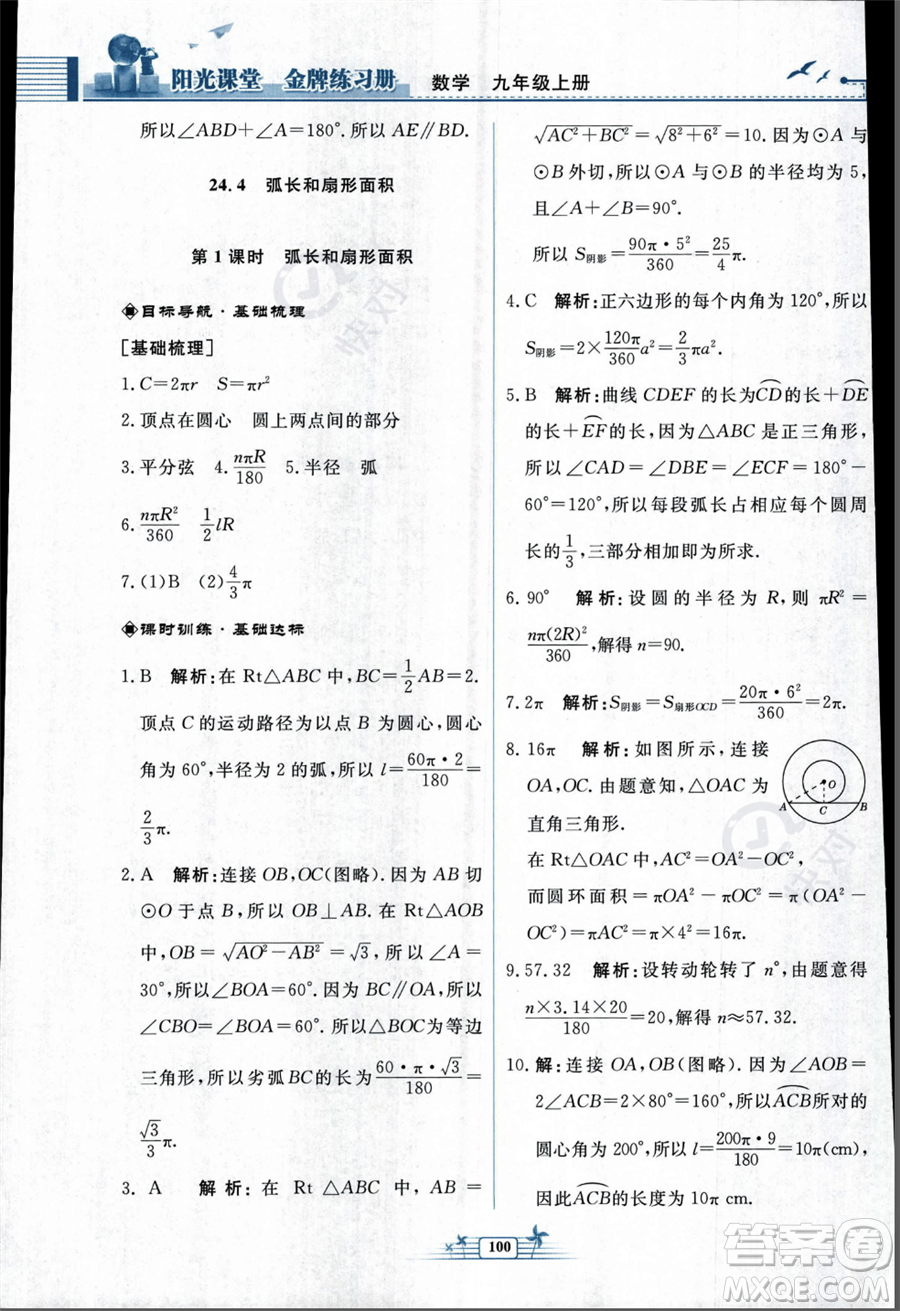 阳光课堂 金牌练习册 数学 九年级上册
所以∠ABD+∠A=180°.所以 AE∥BD.
24.4 弧长和扇形面积
第1课时 弧长和扇形面积
目标导航·基础梳理
[基础梳理]
1.C=2πr S=πr²
2.顶点在圆心 圆上两点间的部分
3.平分弦 4.nπR/180 5.半径 弧
6.nπR²/360 1/2 lR
7.(1)B (2)4/3π
课时训练·基础达标
1.B 解析:在 Rt△ABC 中,BC=1/2AB=2.
顶点 C 的运动路径为以点 B 为圆心,圆心
角为 60°,半径为 2 的弧,所以 l=60π·2/180=
2/3π.
2.A 解析:连接 OB,OC(图略).因为 AB 切
⊙O 于点 B,所以 OB⊥AB.在 Rt△AOB
中,OB=√(AO²-AB²)=√3,所以∠A=
30°,所以∠BOA=60°.因为 BC∥OA,所以
∠CBO=∠BOA=60°.所以△BOC 为等边
三角形,所以劣弧BC的长为60·π·√3/180=
√3/3π.
3.A 解析:在 Rt△ABC 中,AB=
√(AC²+BC²)=√(8²+6²)=10.因为⊙A 与
⊙B 外切,所以⊙A 与⊙B 的半径均为 5,
且∠A+∠B=90°.
所以 S阴影=90π·5²/360=25/4π.
4.C 解析:正六边形的每个内角为 120°,所以
S阴影=2×120π/360a²=2/3πa².
5.B 解析:曲线 CDEF 的长为⌒CD的长+⌒DE
的长+⌒EF的长,因为△ABC 是正三角形,
所以∠CAD=∠DBE=∠ECF=180°-
60°=120°,所以每段弧长占相应每个圆周
长的1/3,三部分相加即为所求.
6.90° 解析:设圆的半径为 R,则 πR²=
nπ(2R)²/360,解得 n=90.
7.2π 解析:S阴影=S扇形OCD=20π·6²/360=2π.
8.16π 解析:如图所示,连接
OA,OC.由题意知,△OAC 为
直角三角形.
O
A C B
在 Rt△OAC 中,AC²=OA²-OC²,
而圆环面积=πOA²-πOC²=π(OA²-
OC²)=πAC²=π×4²=16π.
9.57.32 解析:设转动轮转了 n°,由题意得
n×3.14×20/180=20,解得 n≈57.32.
10.解:连接 OA,OB(图略).因为∠AOB=
2∠ACB=2×80°=160°,所以⌒ACB所对的
圆心角为 200°,所以 l=200π·9/180=10π(cm),
因此⌒ACB的长度为 10π cm.
100
快对
快对
答案圈
MXQE.COM